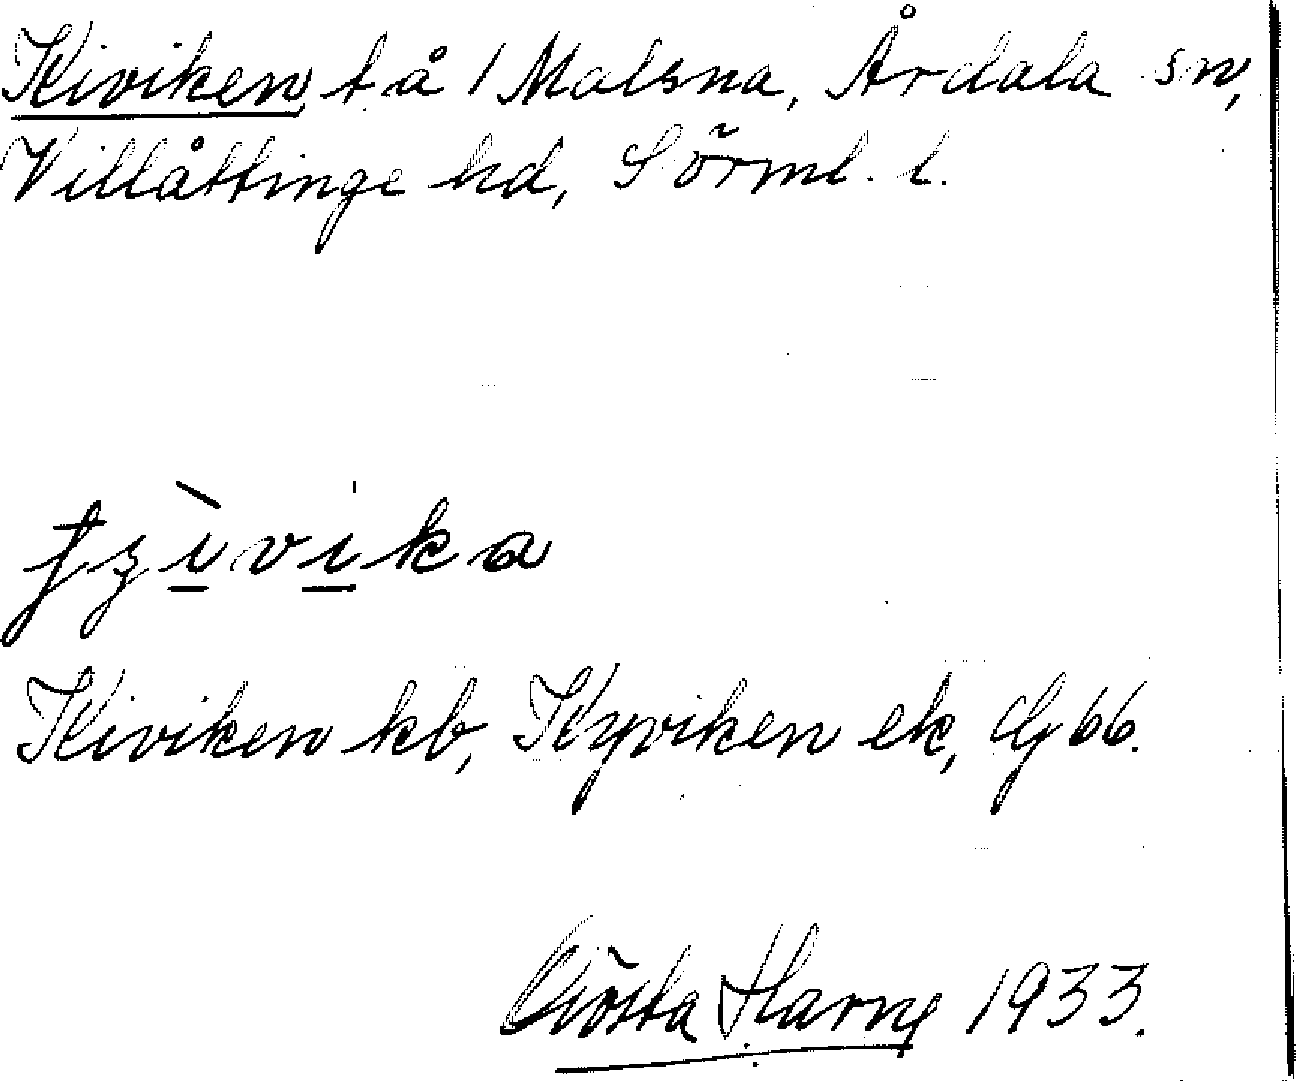 Kiviken t å 1 Malsna, Årdala sn,
Villåttinge hd, Sörml. l.
Kiviken kb, Kyviken ek, Gg 66.
Gösta Harne 1933.